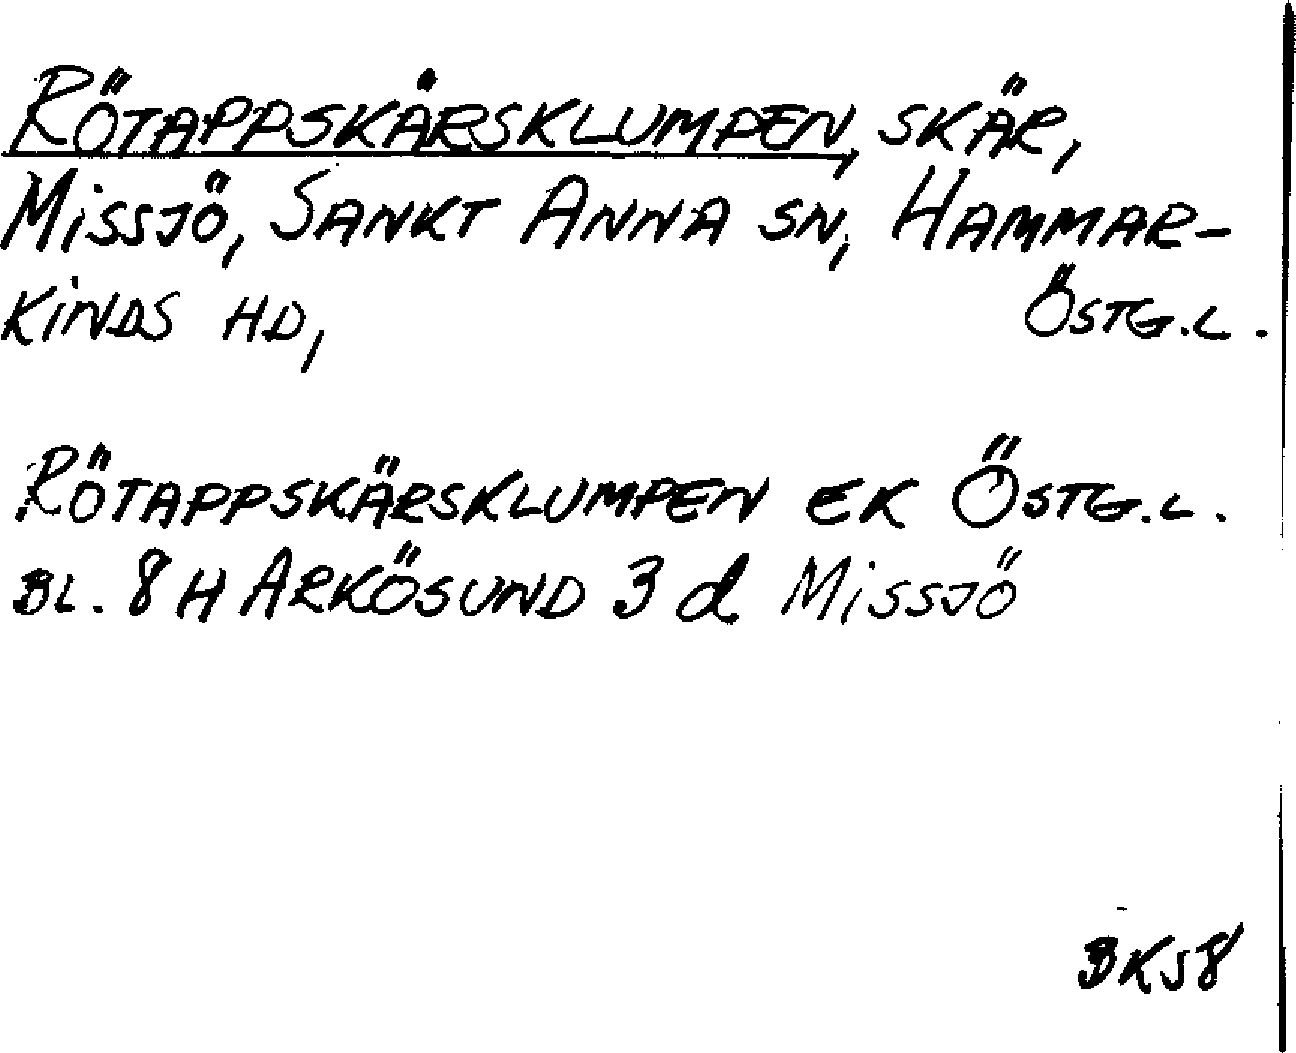 RÖTAPPSKÄRSKLUMPEN, SKÄR,
MISSJÖ, SANKT ANNA SN, HAMMAR-
KINDS HD, ÖSTG.L.
RÖTAPPSKÄRSKLUMPEN EK ÖSTG.L.
BL. 8 H ARKÖSUND 3 d MISSJÖ
BKS8